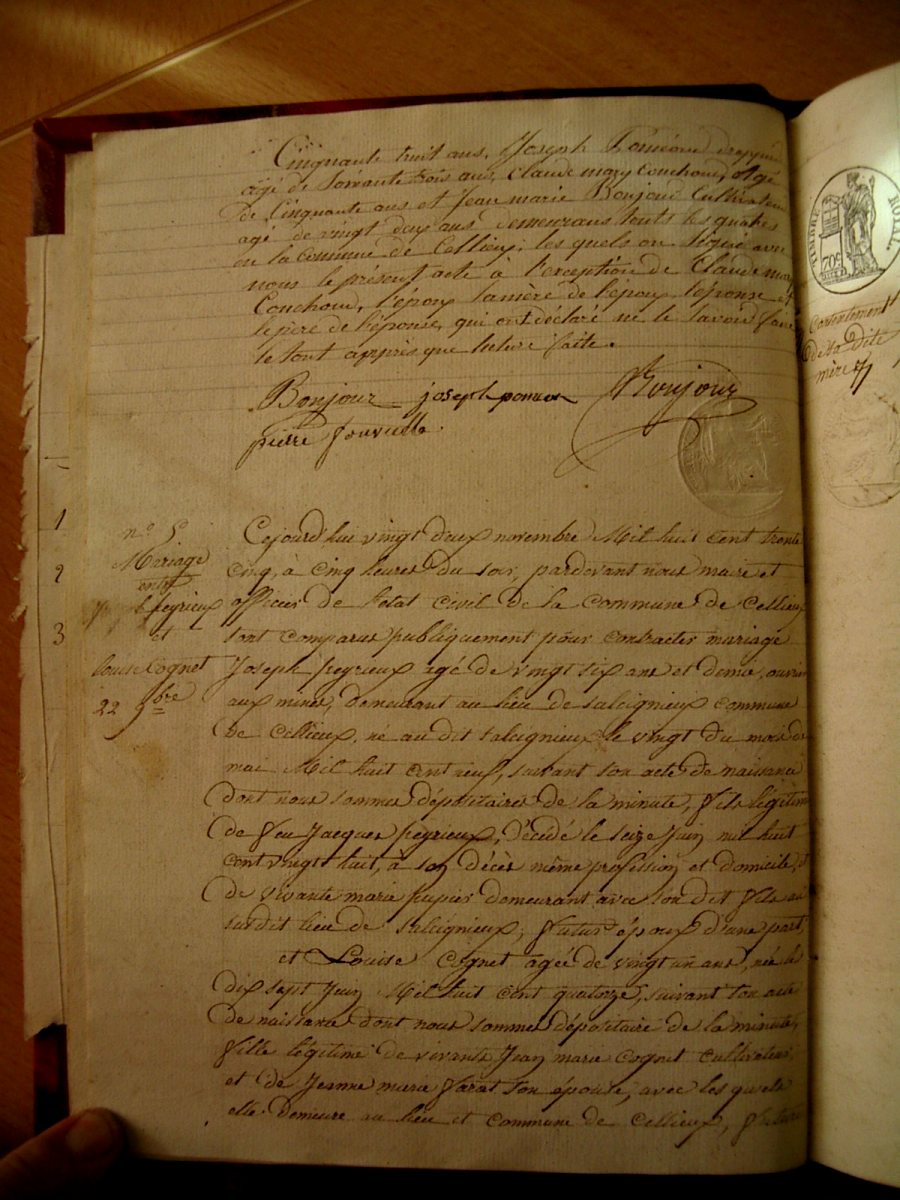 Cinquante huit ans, Joseph
agé de Soixante trois ans, Claude mary Couchoud, agé
De Cinquante ans et Jean marie Bonjour Cultivateur
agé de vingt deux ans demeurans touts les quatres
en la Commune de Cellieux; les quels on signé avec
nous le présent acte à l'exception de Claude mary
Couchoud, l'époux la mère de l'époux l'épouse et
le père de l'épouse, qui ont déclaré ne le savoir faire
le tout apprès que lecture faite.
Bonjour joseph poncon Bonjour
pierre
TIMBRE ROYAL
70c
Consentement
de la dite
mère
1
2
3
n.o 5
Mariage
entre
j. peyrieux
et
louise Cognet
22 9bre
Cejourd'hui vingt deux novembre Mil huit cent trente
cinq, à cinq heures du soir, pardevant nous maire et
officier de l'état civil de la commune de Cellieux
sont comparus publiquement pour contracter mariage
Joseph peyrieux agé de vingt six ans et demie, ouvrier
aux mines, demeurant au lieu de salcignieux commune
de Cellieux, né au dit salcignieux le vingt du mois de
mai Mil huit cent neuf, suivant son acte de naissance
dont nous sommes dépositaires de la minute, fils légitime
de feu Jacques peyrieux, décédé le seize Juin mil huit
cent vingt huit, à son décès même profession et domicile, et
de vivante marie pupier demeurant avec son dit fils au
susdit lieu de salcignieux, futur époux d'une part,
et Louise Cognet agée de vingt un ans, née le
dix sept Juin Mil huit cent quatorze, suivant son acte
de naissance dont nous sommes dépositaire de la minute,
fille légitime de vivants Jean marie Cognet cultivateur
et de Jeanne marie farat son épouse, avec les quels
elle demeure au lieu et commune de Cellieux, future